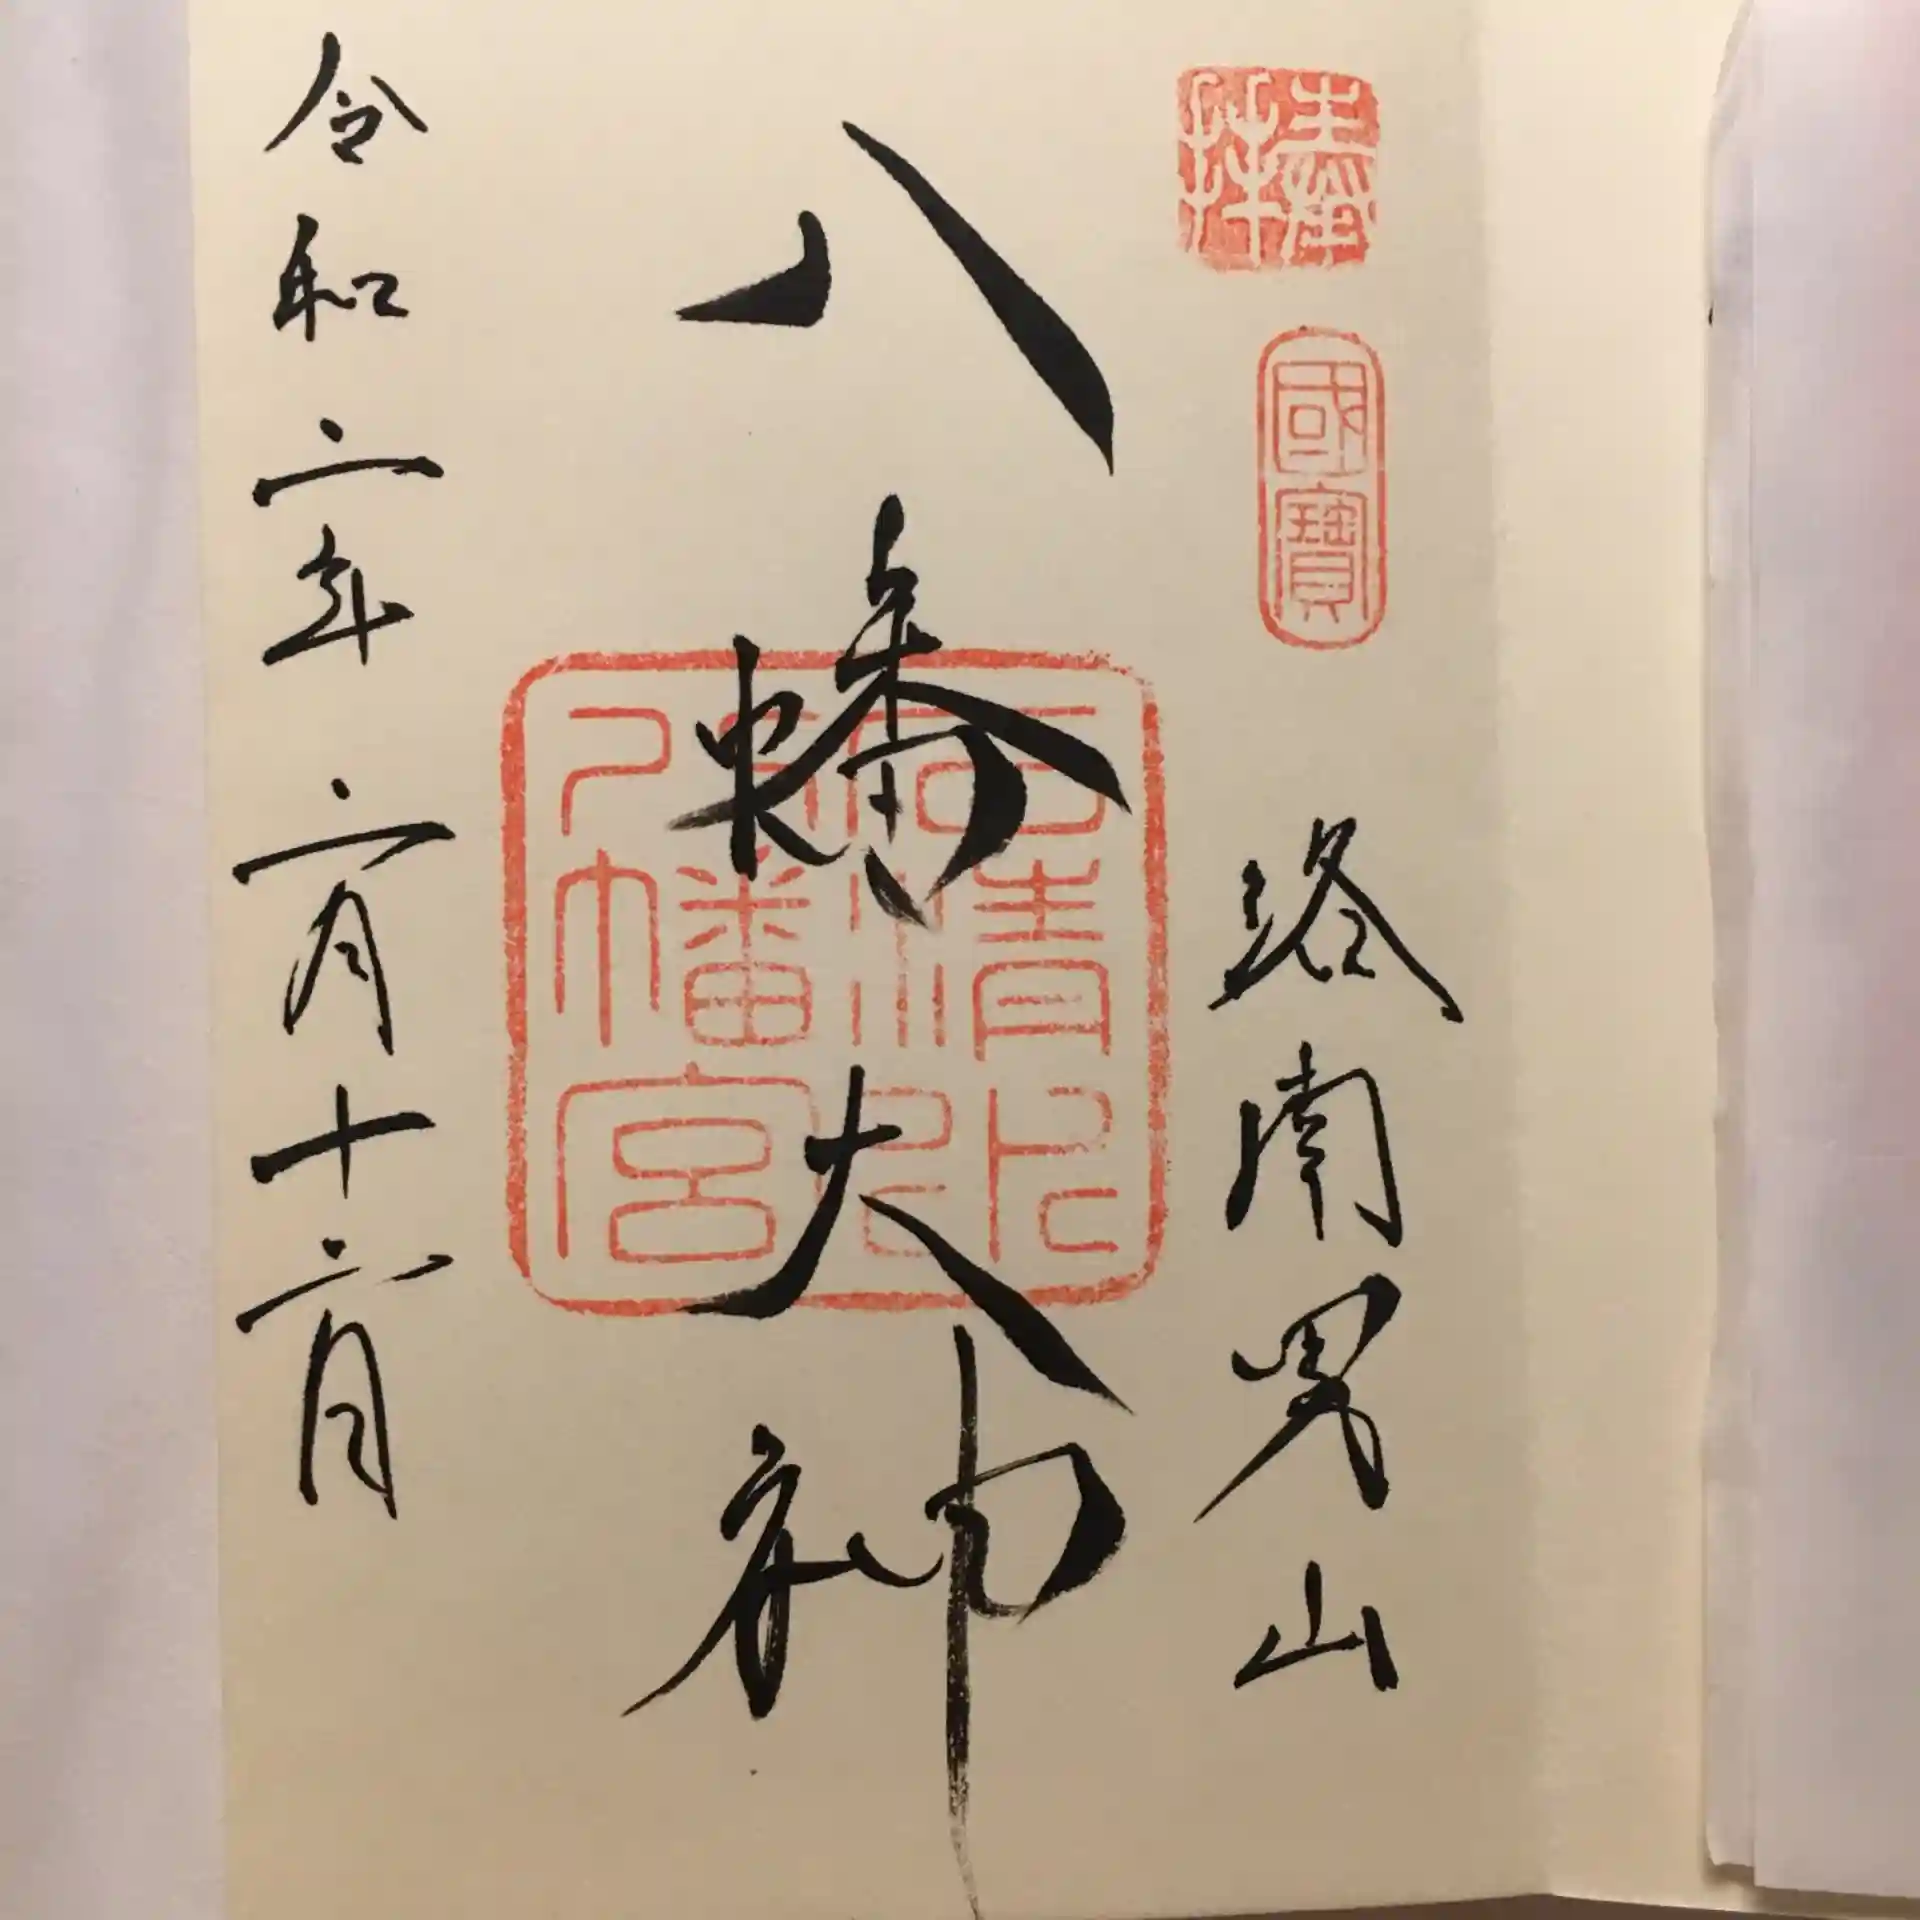 奉拝
國寶
洛南男山
八幡大神
石清
八幡宮
令和二年二月十六日